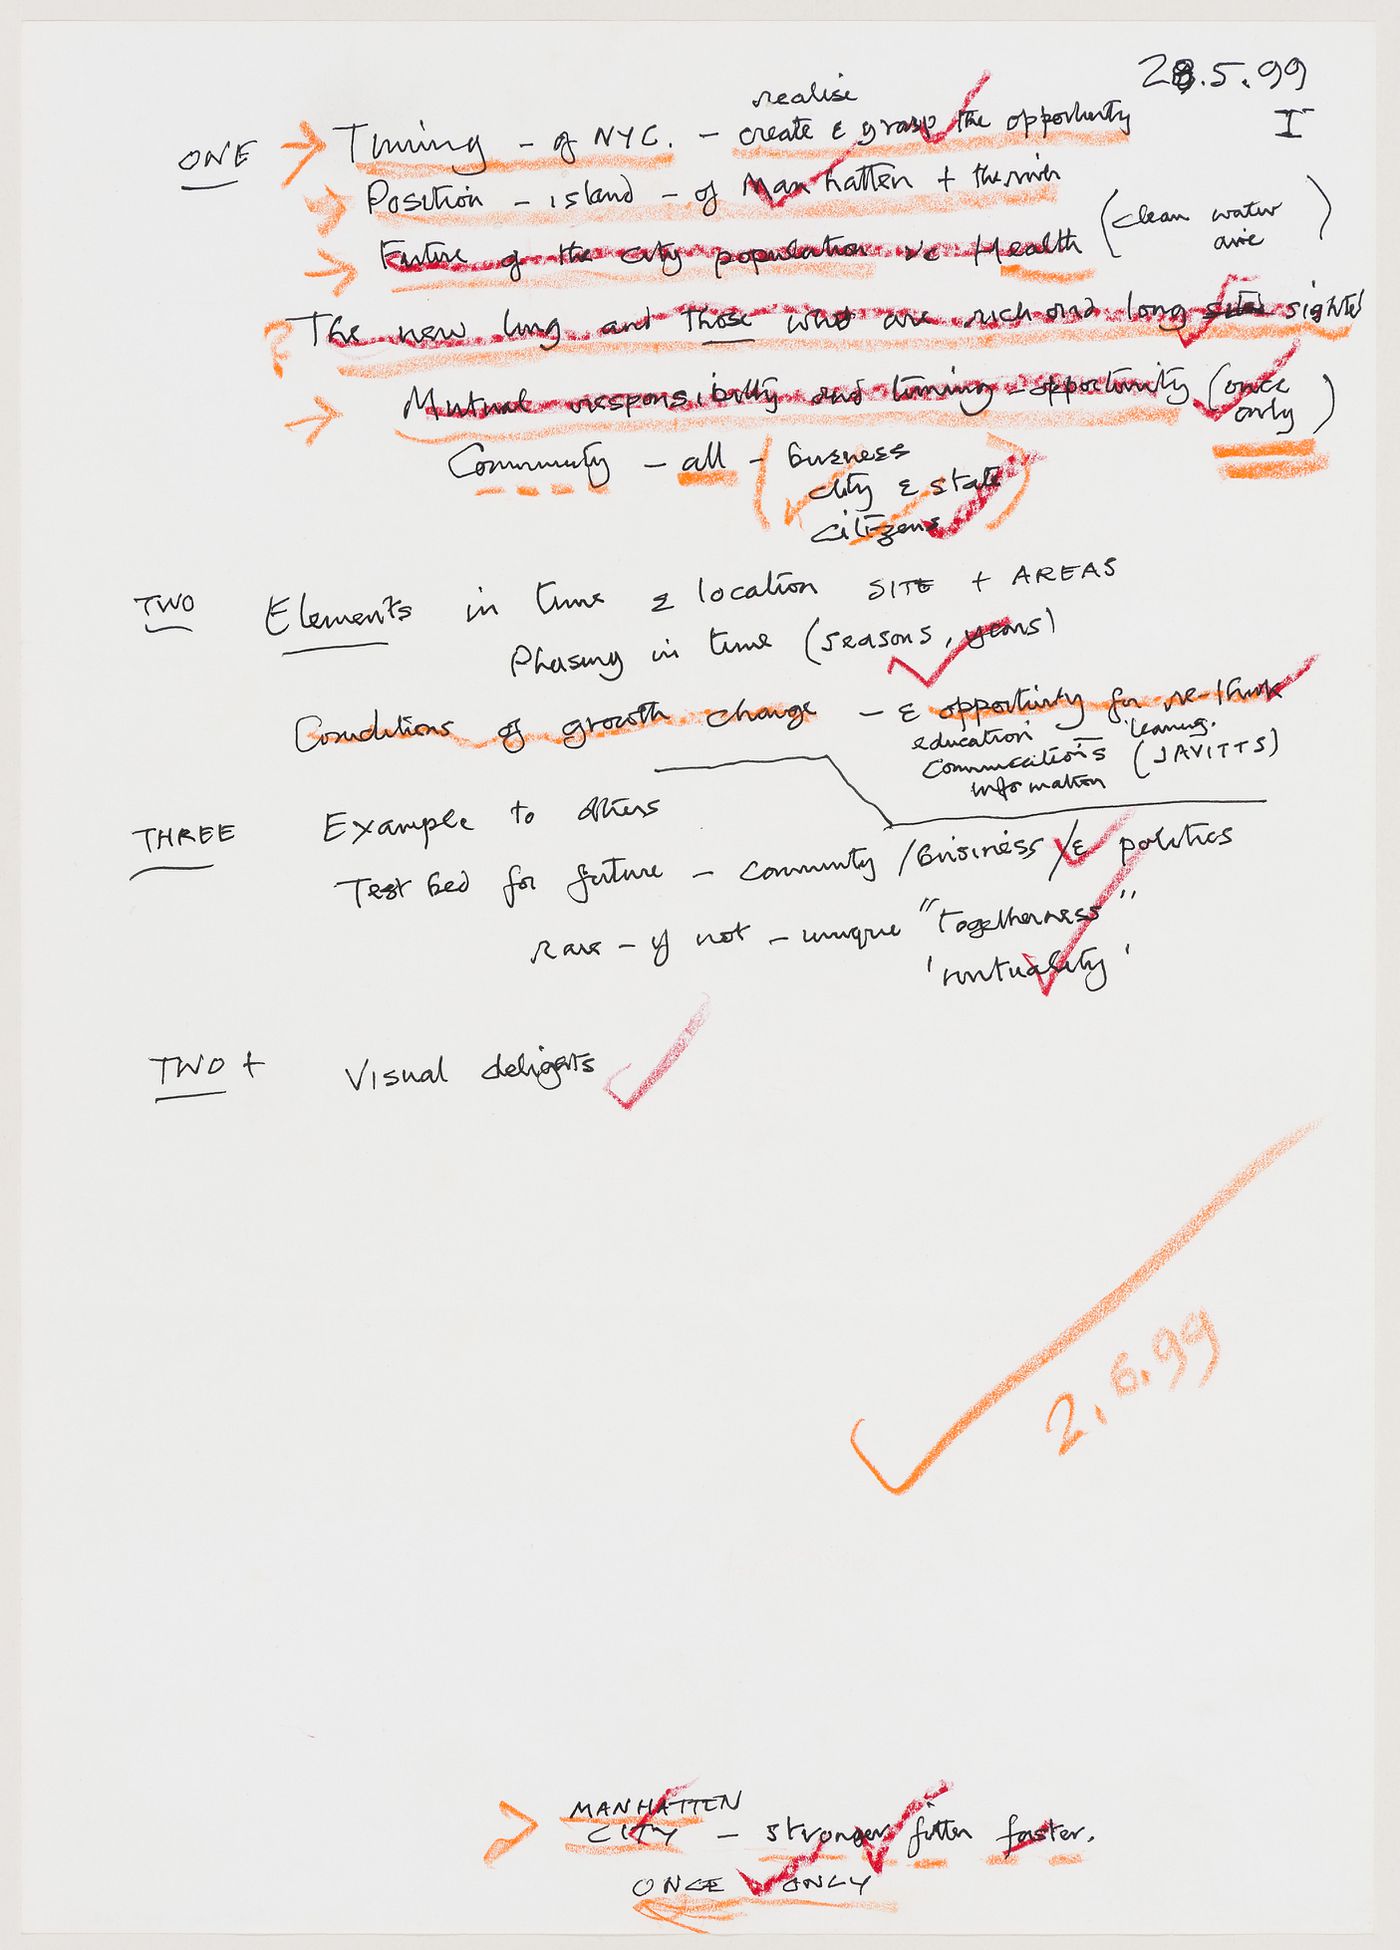 28.5.99
I
realise
ONE Timing - of NYC. - create & grasp the opportunity
Position - island - of Manhatten + the river
Future of the city population ie Health (clean water
aire )
The new lung and those who are rich and long sighted
Mutual responsibility and timing - opportunity (once
only)
Community - all - (business
city & state
citizens)
TWO Elements in time & location SITE + AREAS
Phasing in time (seasons, years)
Conditions of growth change - & opportunity for re-think
education - learning.
Communications (JAVITTS)
information
THREE Example to others
Test bed for future - community / business / & politics
rare - if not - unique "togetherness"
'virtuality'
TWO + Visual delights
2.6.99
MANHATTEN
CITY - stronger fitter faster.
ONCE ONLY